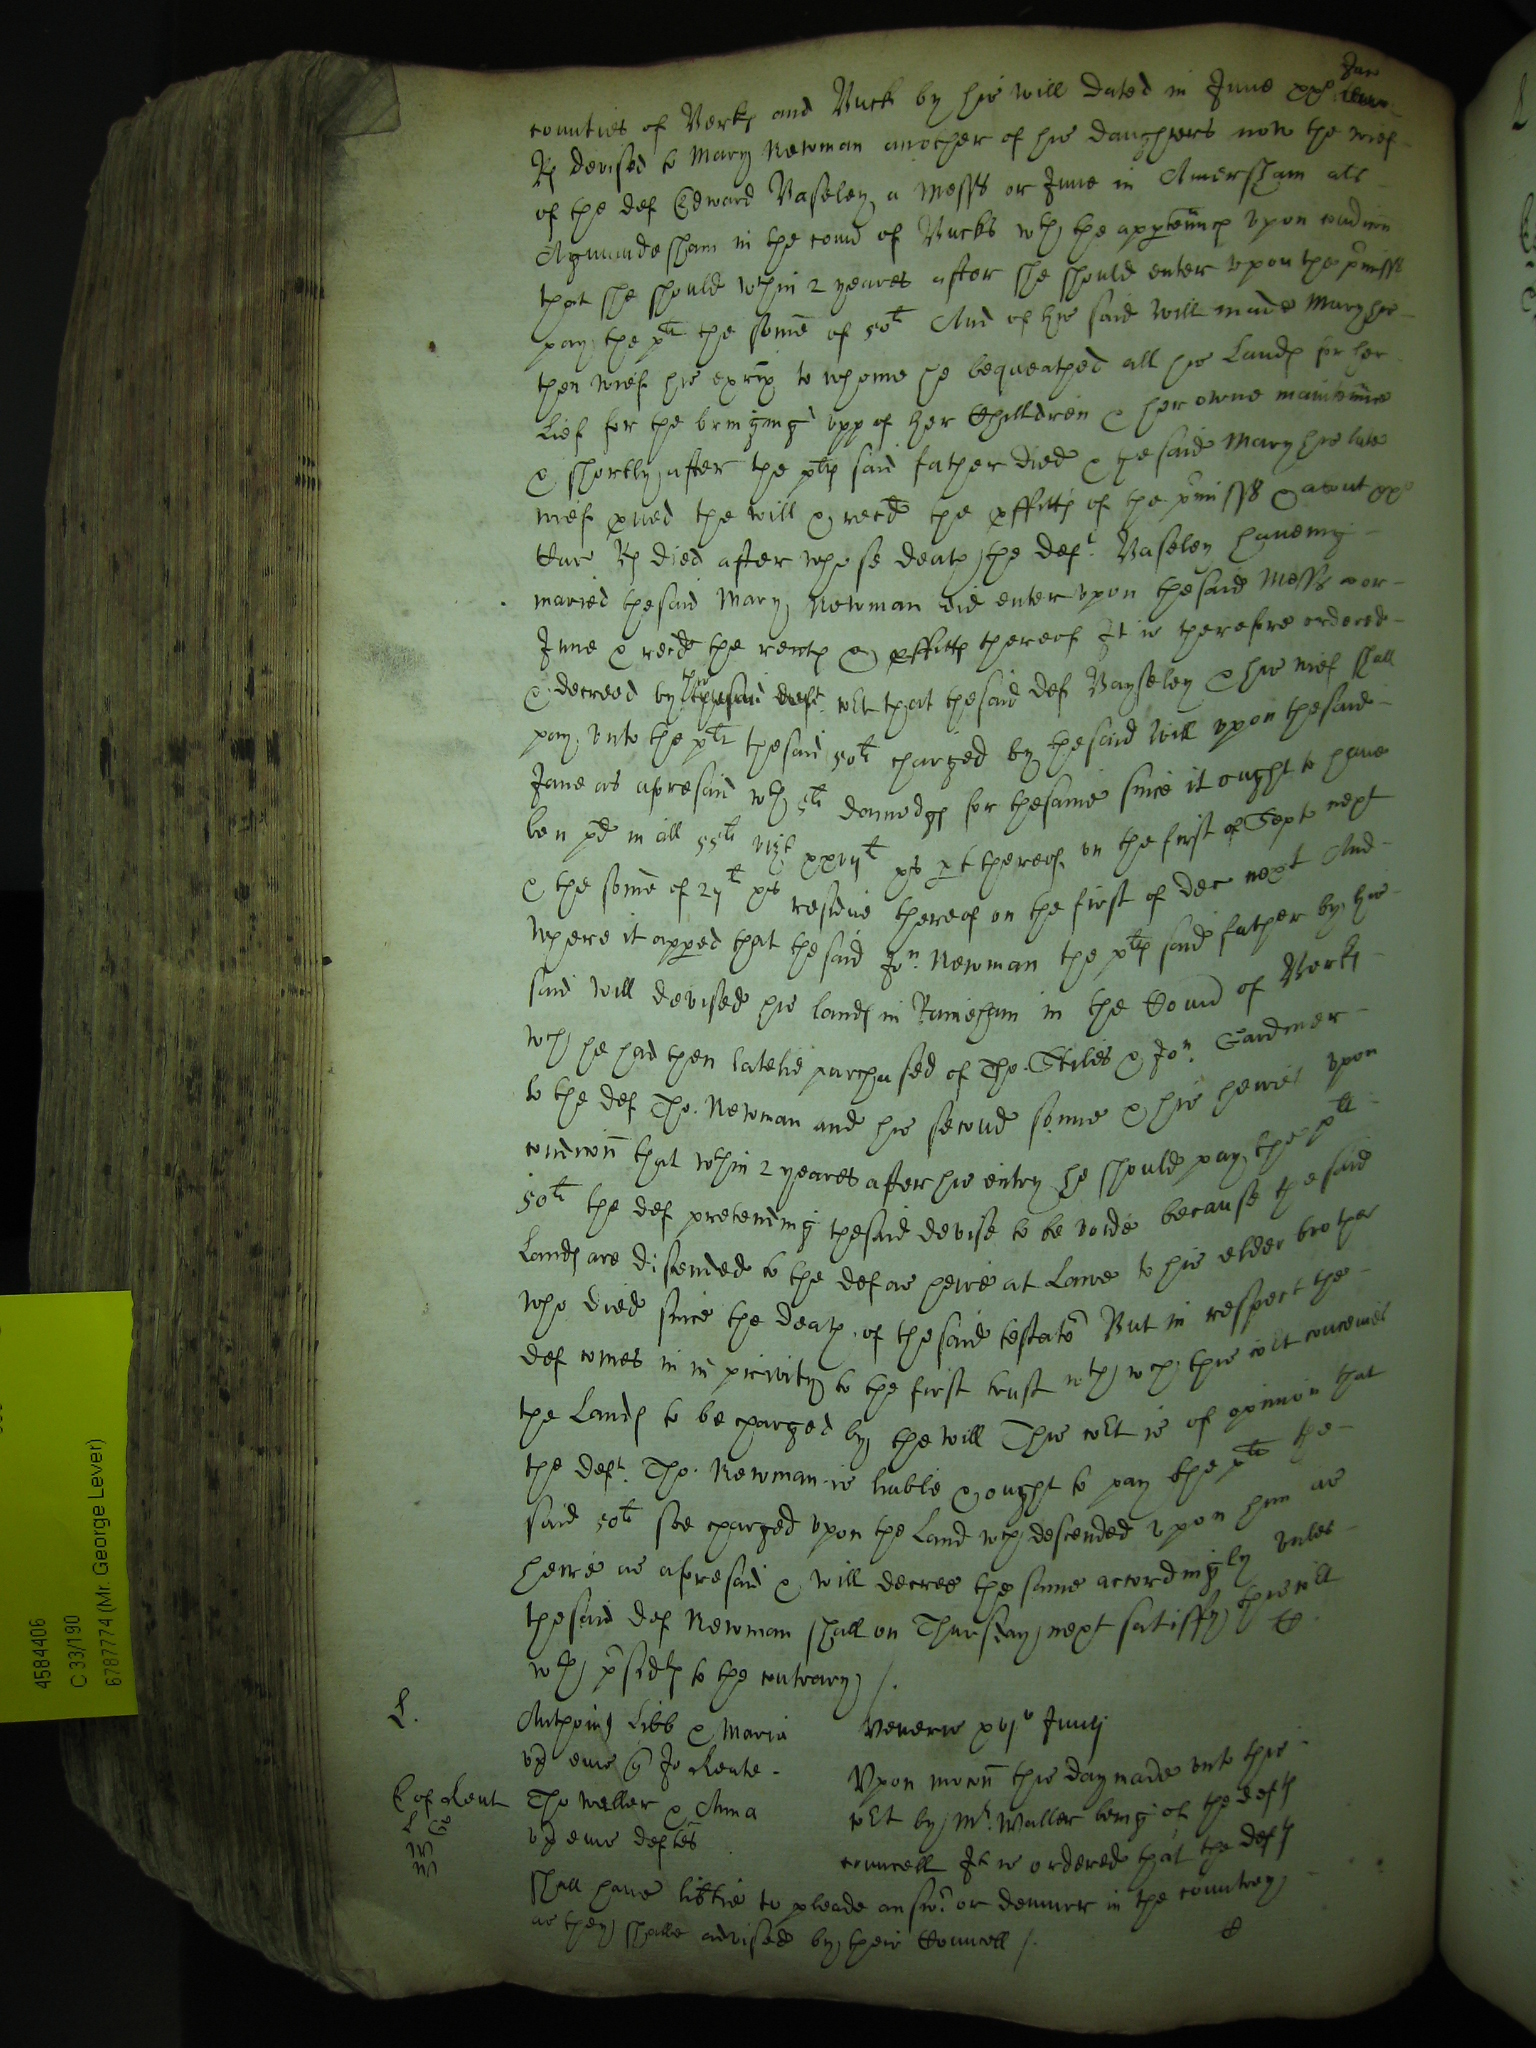 counties of Berks and Buck by his will dated in June xxo Jac
R devised to Mary Newman another of his daughters now the wief
of the def Edward Baseley a Mess or Inne in Amersham als
Agmundesham in the coun of Bucks wth the apptennc upon condicon
that she should wthin 2 yeares after she should enter upon the pmiss
pay the plt the some of 50li And of his said will made Mary his
then wief his exrix to whome he bequeathed all his Lands for her
Lief for the bringing upp of her Children & her owne maintennce
& shortly after the plts said father died & the said Mary his late
wief pved the will & recd the pffitts of the pmiss & about xxo
Car R died after whose death the deft Baseley haveing
maried the said Mary Newman did enter upon the said Mess or
Inne & recd the rents & pffitts thereof It is therefore ordered
& decreed by this Cort that the said def Bayseley & his wief shall
pay unto the plt the said 50li charged by the said will upon the said
Inne as aforesaid wth 5li damadgs for the same since it ought to have
ben pd in all 55li vizt xxviijli pt thereof on the first of Sept next
& the some of 27li residue thereof on the first of Dec next And
where it apped that the said Jon Newman the plts said father by his
said will devised his lands in in the Coun of Berks
wch he had then latelie purchased of Tho. Stiles & Jon Gardiner
to the def Tho. Newman and his second sonne & his heires upon
condicon that wthin 2 yeares after his entry he should pay the plt
50li the def pretending the said devise to be voide because the said
Lands are discended to the def as heire at Lawe to his elder brother
who died since the death of the said testator But in respect the
def comes in in privity to the first trust wth wch this cort conceives
the Lands to be charged by the will This cort is of opinion that
the deft Tho. Newman is liable & ought to pay the plt the
said 50li soe charged upon the Land wch descended upon him as
heire as aforesaid & will decree the same accordingly unles
the said def Newman shall on Thursday next satisfy this cort
wth to the contrary
L.
Anthoiny Libb & Maria
ux eius q Jo Keate
Veneris xvjo Junij
C of Kent
Tho Weller & Anna
ux eius defts
Upon mocon this day made unto this
cort by Mr Waller being of the defts
councell It is ordered that the defts
shall have libtie to pleade answer or demurr in the countrey
as they shalbe advised by their Councell
4584406
C 33/190
6787774 (Mr. George Lever)